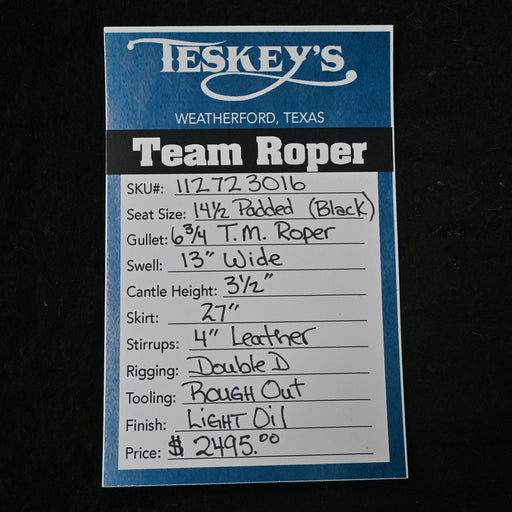 TESKEY'S
WEATHERFORD, TEXAS
Team Roper
SKU#: 112723016
Seat Size: 14½ Padded (Black)
Gullet: 6¾ T.M. Roper
Swell: 13" Wide
Cantle Height: 3½"
Skirt: 27"
Stirrups: 4" Leather
Rigging: Double D
Tooling: ROUGH Out
Finish: LIGHT Oil
Price: $ 2495.00